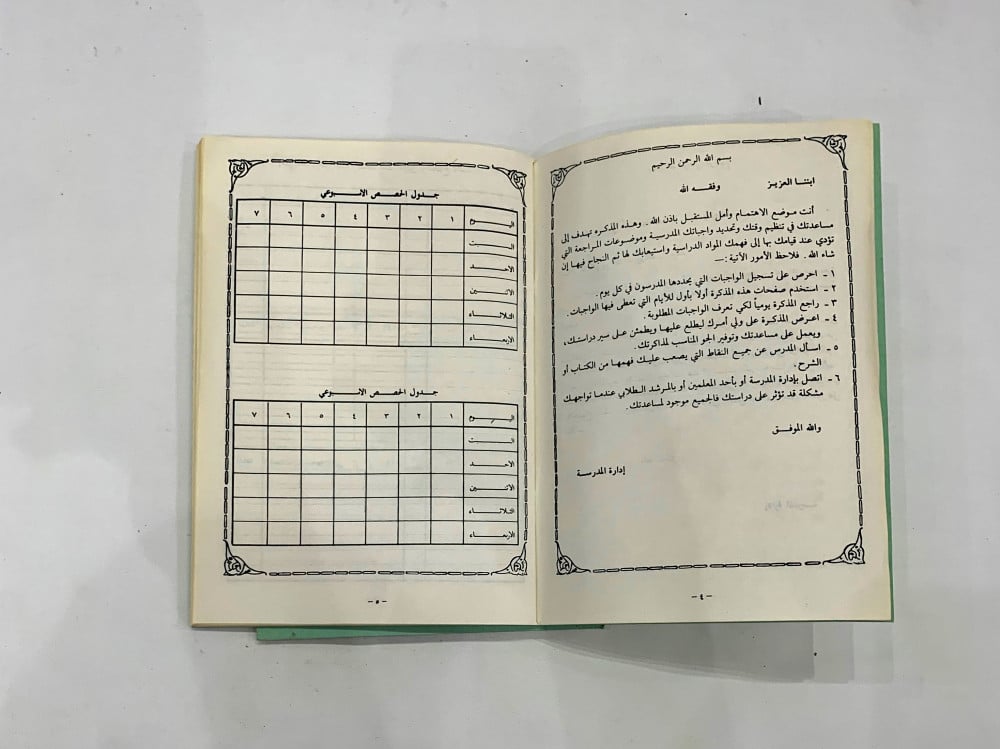 بسم الله الرحمن الرحيم
ابننا العزيز وفقه الله
أنت موضع الاهتمام وأمل المستقبل باذن الله. وهذه المذكره تهدف إلى
مساعدتك في تنظيم وقتك وتحديد واجباتك المدرسية وموضوعات المراجعة التي
تؤدي عند قيامك بها إلى فهمك المواد الدراسية واستيعابك لها ثم النجاح فيها إن
شاء الله. فلاحظ الأمور الآتية :ـ
١ - احرص على تسجيل الواجبات التي يحددها المدرسون في كل يوم.
٢ - استخدم صفحات هذه المذكرة أولا بأول للأيام التي تعطى فيها الواجبات.
٣ - راجع المذكرة يومياً لكي تعرف الواجبات المطلوبة.
٤ - اعرض المذكرة على ولي أمرك ليطلع عليها ويطمئن على سير دراستك،
ويعمل على مساعدتك وتوفير الجو المناسب لمذاكرتك.
٥ - اسأل المدرس عن جميع النقاط التي يصعب عليك فهمها من الكتاب أو
الشرح.
٦ - اتصل بإدارة المدرسة أو بأحد المعلمين أو بالمرشد الطلابي عندما تواجهك
مشكلة قد تؤثر على دراستك فالجميع موجود لمساعدتك.
والله الموفق
إدارة المدرسة
- ٤ -
جدول الحصص الاسبوعي
اليوم ١ ٢ ٣ ٤ ٥ ٦ ٧
السبت
الاحد
الاثنين
الثلاثاء
الاربعاء
جدول الحصص الاسبوعي
اليوم ١ ٢ ٣ ٤ ٥ ٦ ٧
السبت
الاحد
الاثنين
الثلاثاء
الاربعاء
- ٥ -